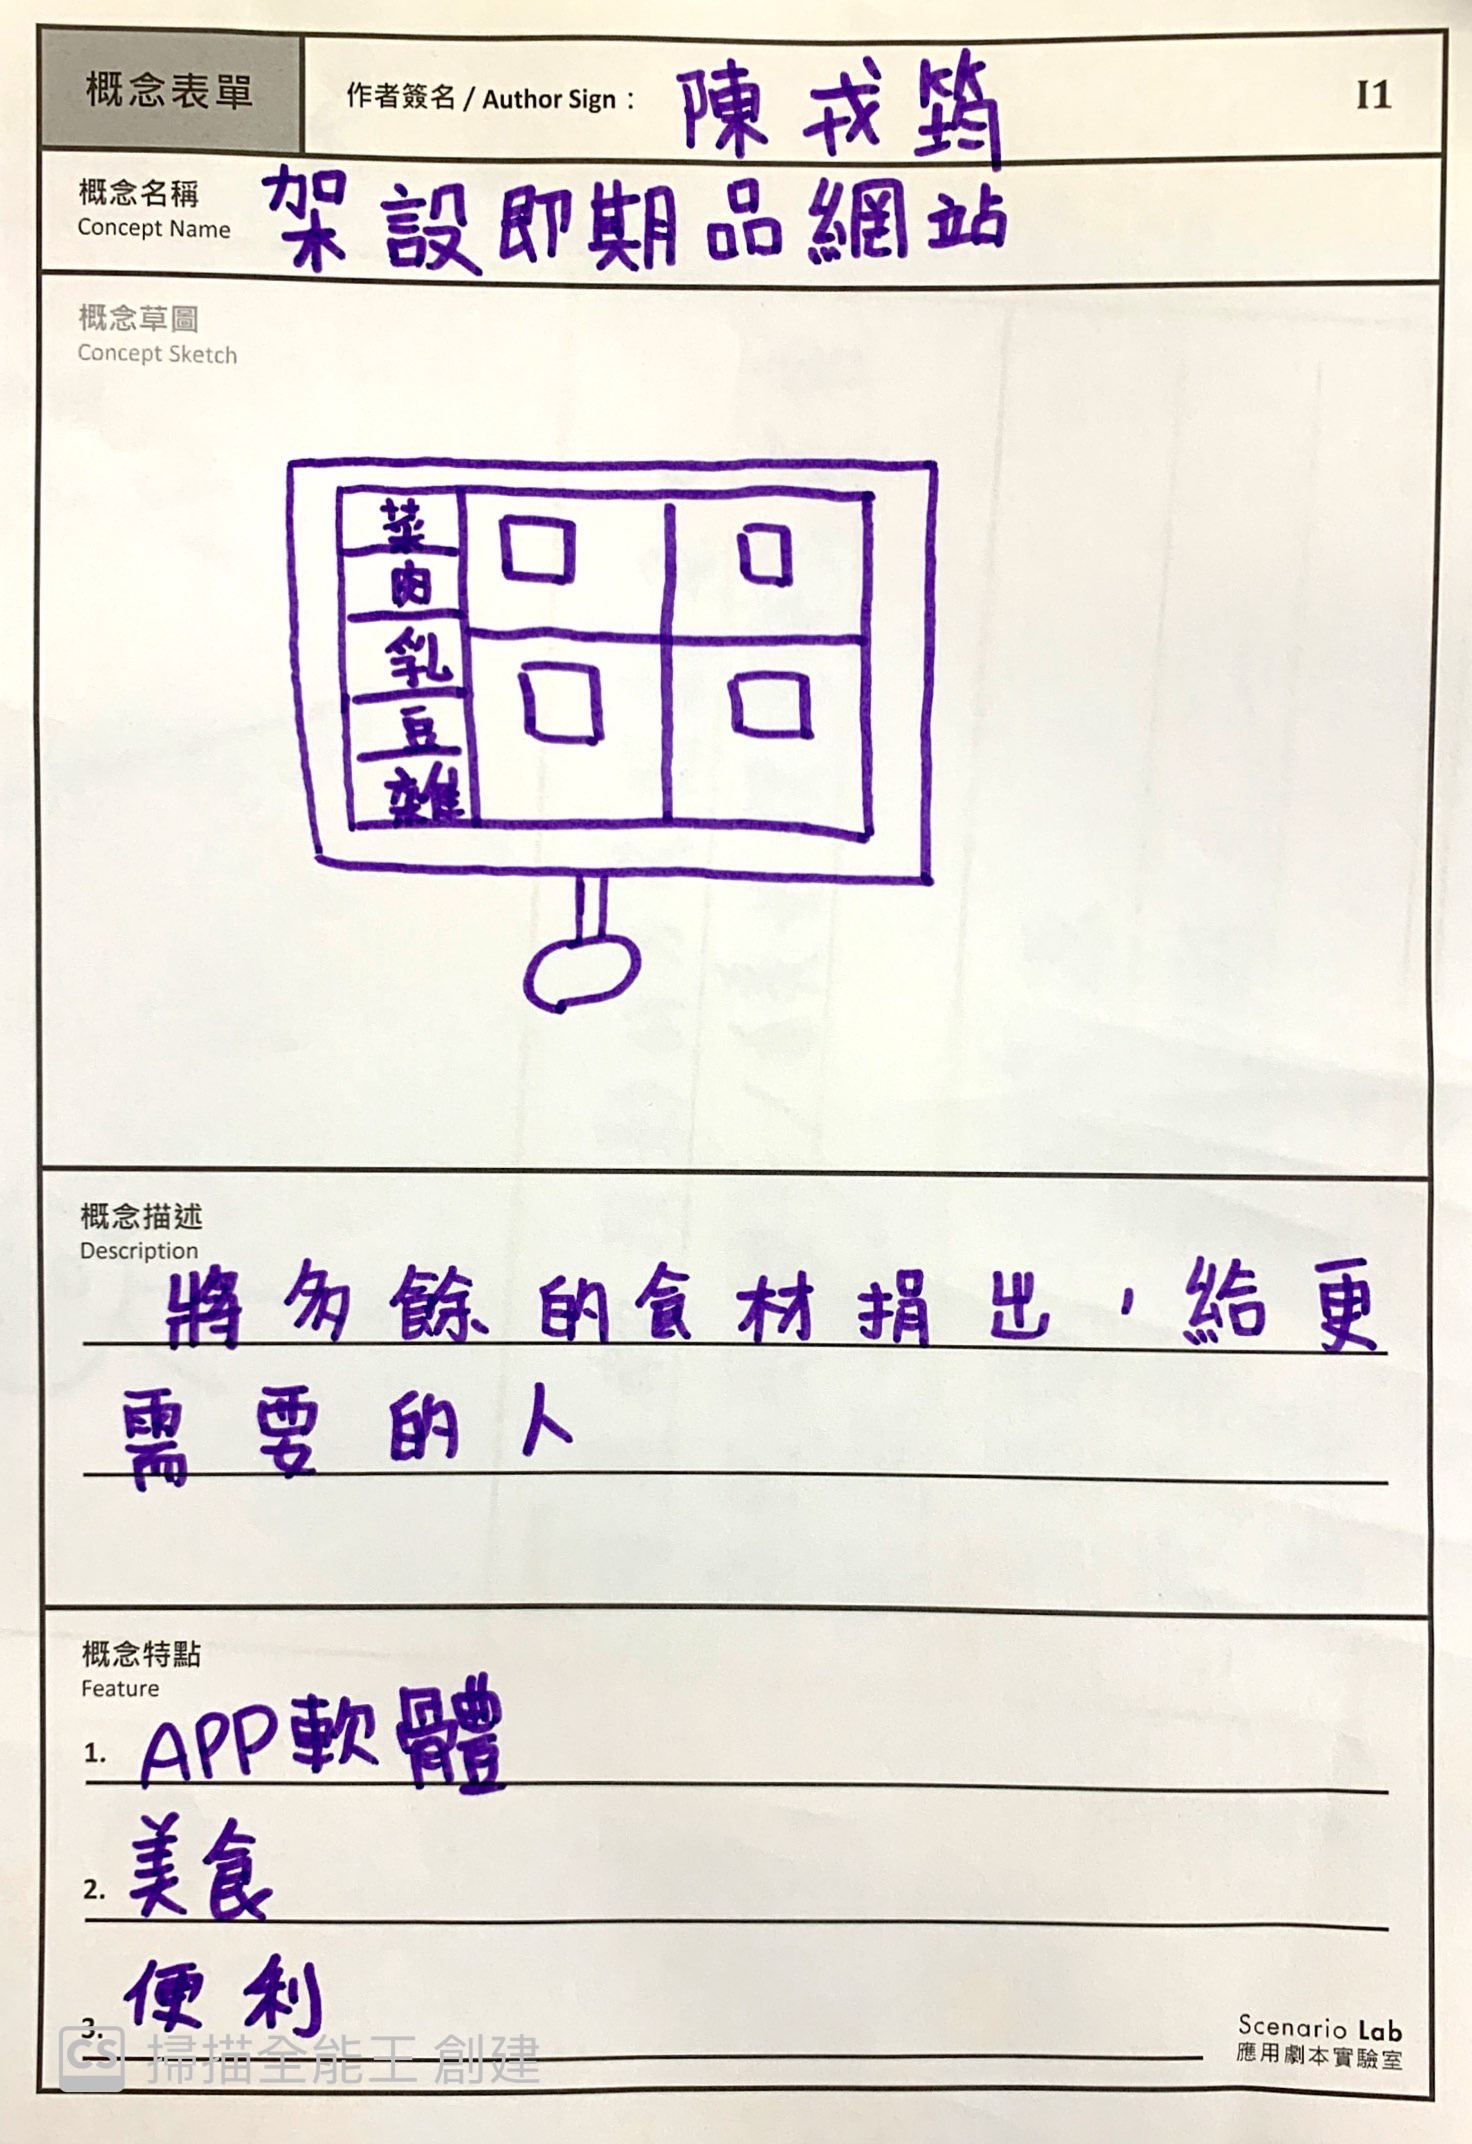 概念表單
作者簽名 / Author Sign：
陳戎筠
I1
概念名稱
Concept Name
架設即期品網站
概念草圖
Concept Sketch
菜
肉
乳
豆
雜
概念描述
Description
將多餘的食材捐出，給更
需要的人
概念特點
Feature
1. APP軟體
2. 美食
3. 便利
Scenario Lab
應用劇本實驗室
CS 掃描全能王 創建